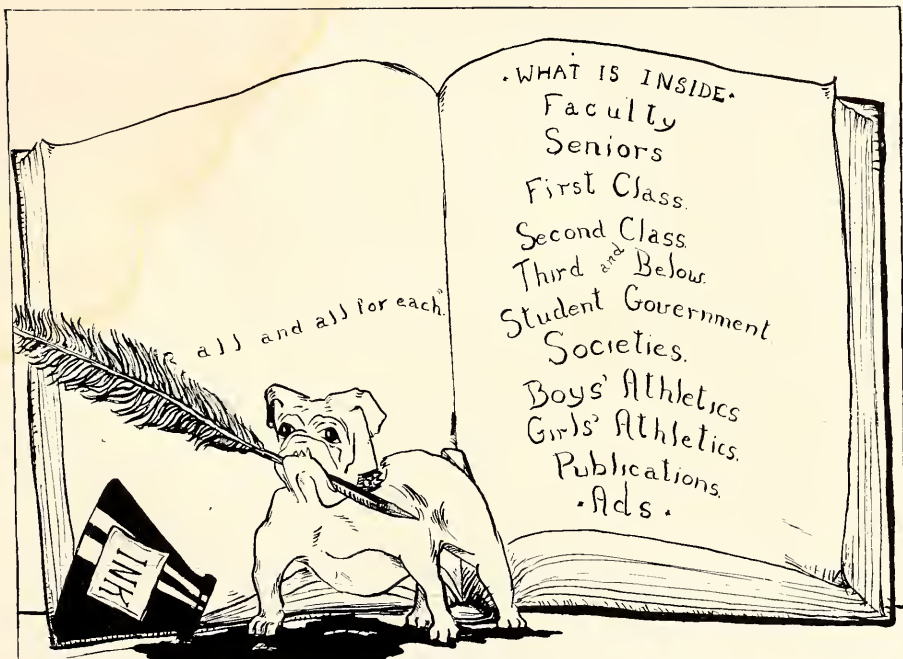 all and all for each."
·WHAT IS INSIDE·
Faculty
Seniors
First Class.
Second Class.
Third and Below.
Student Government
Societies.
Boys' Athletics
Girls' Athletics.
Publications.
·Ads·
INK